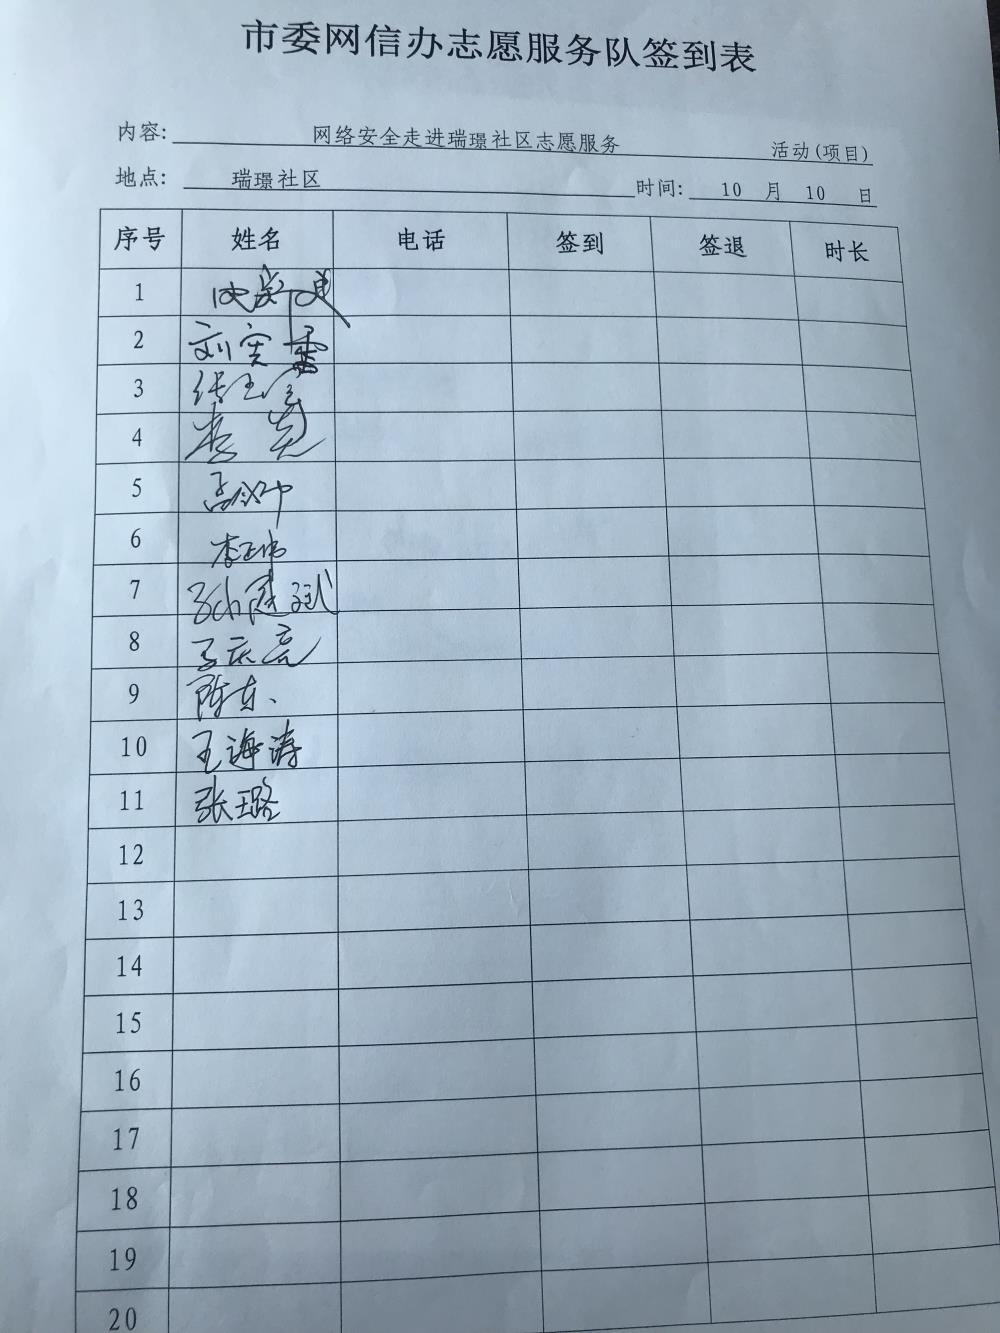 市委网信办志愿服务队签到表
内容: 网络安全走进瑞璟社区志愿服务 活动(项目)
地点: 瑞璟社区 时间: 10 月 10 日
序号 姓名 电话 签到 签退 时长
1
2 刘宪雷
3 张玉
4 李亮
5
6 李正伟
7 孙建斌
8 于庆亮
9 陈东
10 王海涛
11 张璐
12
13
14
15
16
17
18
19
20